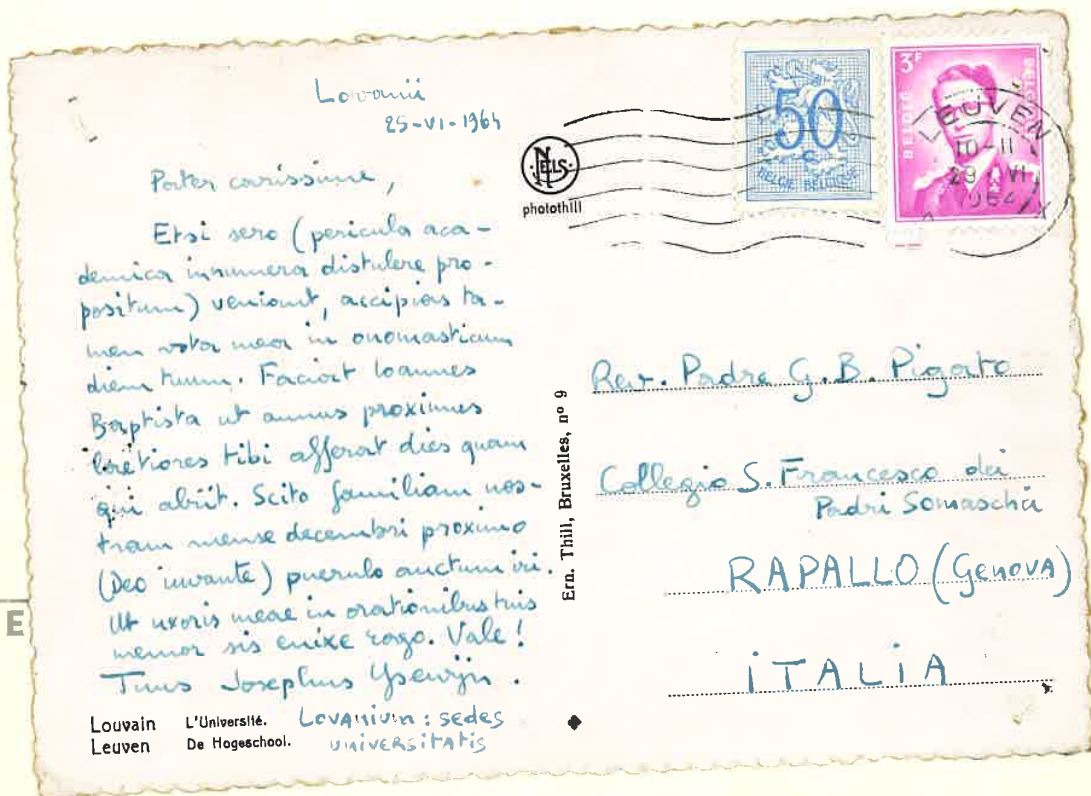 Lovanii
25-VI-1964
Pater carissime,
Etsi sero (pericula aca-
demica innumera distulere pro-
positum) veniant, accipias ta-
men vota mea in onomasticum
diem tuum. Faciat Ioannes
Baptista ut annus proximus
laetiores tibi afferat dies quam
qui abiit. Scito familiam nos-
tram mense decembri proximo
(Deo iuvante) puerulo auctum iri.
Ut uxoris meae in orationibus tuis
memor sis enixe rogo. Vale!
Tuus Josephus Ysewijn.
Louvain L'Université.
Leuven De Hogeschool.
Lovanium: sedes
universitatis
NELS
photothill
Ern. Thill, Bruxelles, nº 9
50
c
BELGIE BELGIQUE
3F
BELGIË
BELGIQUE
LEUVEN
10-11
29 VI
1964
Rev. Padre G.B. Pigato
Collegio S. Francesco dei
Padri Somaschi
RAPALLO (Genova)
ITALIA
E